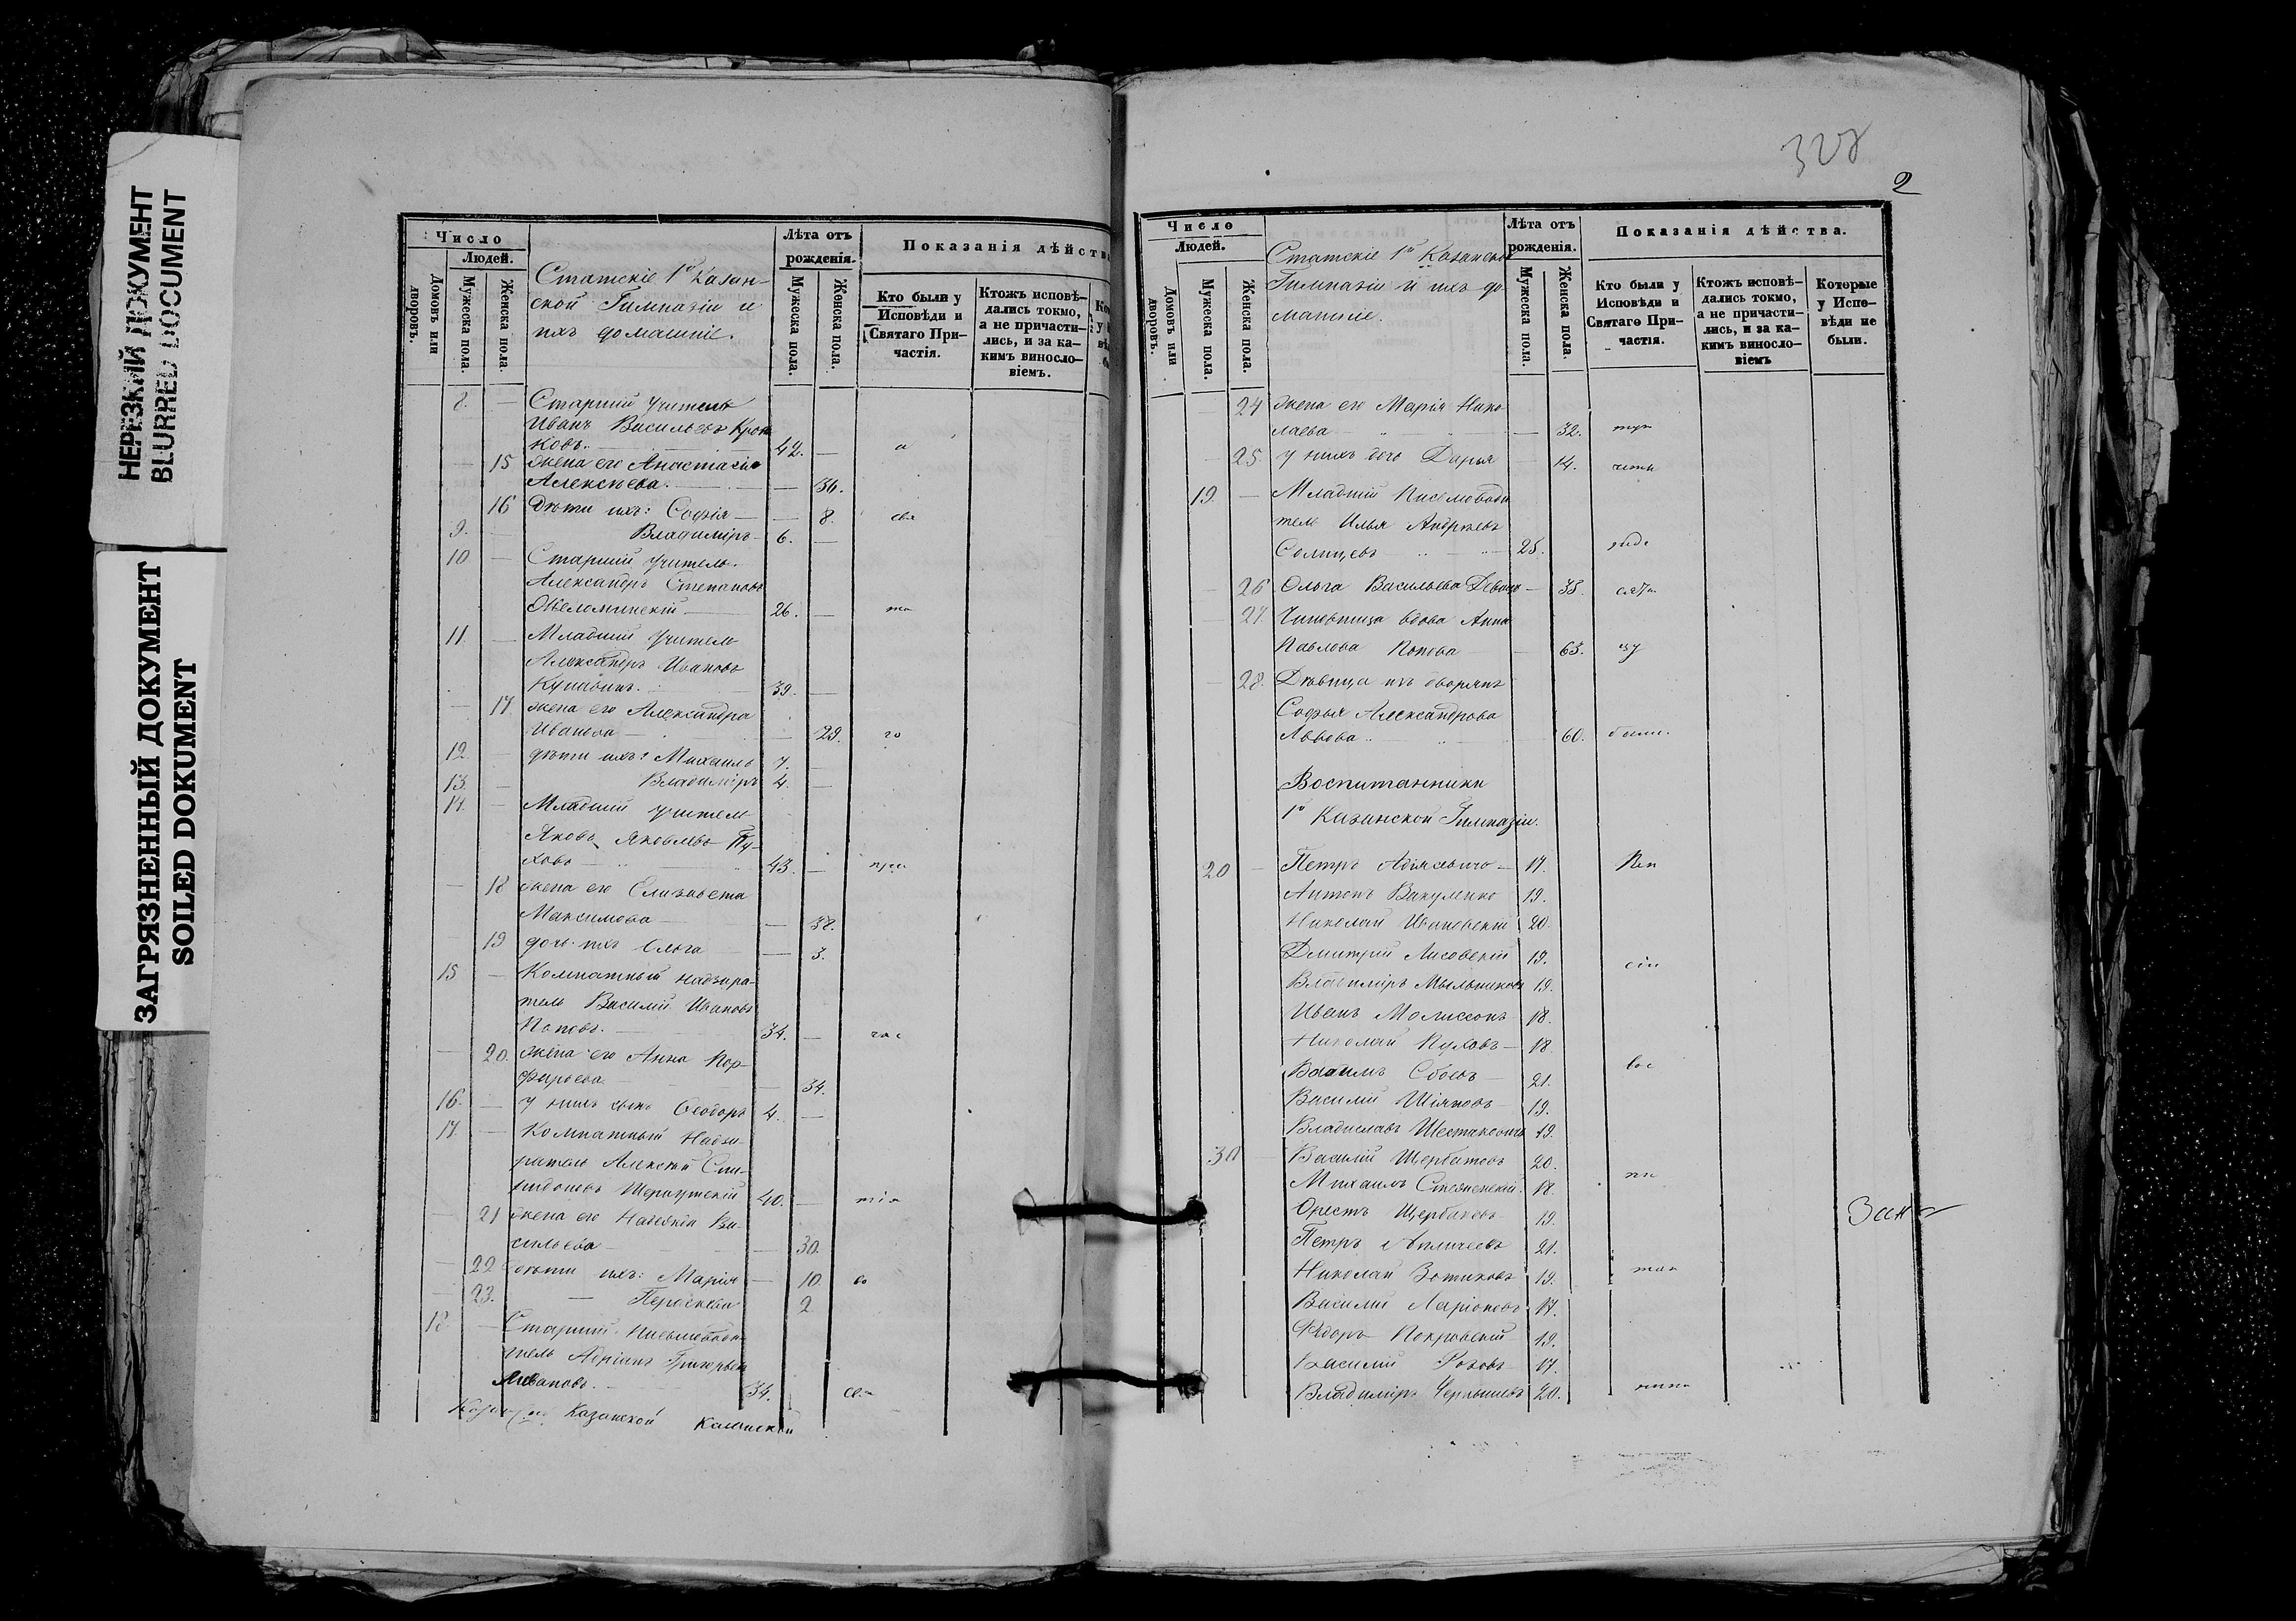 НЕРЕЗКИЙ ДОКУМЕНТ
BLURRED DOCUMENT
ЗАГРЯЗНЕННЫЙ ДОКУМЕНТ
SOILED DOKUMENT
Число
Людей.
Домовъ или дворовъ.
Мужеска пола.
Женска пола.
Статскіе 1й Казан-
ской Гимназіи и
ихъ домашніе.
Лѣта отъ
рожденія.
Мужеска пола.
Женска пола.
Показанія дѣйств
Кто были у
Исповѣди и
Святаго При-
частія.
Ктожъ исповѣ-
дались токмо,
а не причасти-
лись, и за ка-
кимъ винос­ло-
віемъ.
8. — Старшій Учитель
Иванъ Васильевъ
ковъ. 42. —
— 15 жена его Анастасія
Алексѣева. — 34.
16 Дѣти ихъ: Софія — 8. свя
9. — Владиміръ 6. —
10 — Старшій Учитель
Александръ Степановъ
26. — та
11. — Младшій Учитель
Александръ Ивановъ
39. —
— 17 жена его Александра
Иванова — 29. го
12. дѣти ихъ: Михаилъ 7. —
13. — Владиміръ 4. —
14. — Младшій учитель
Яковъ Яковлевъ Пу-
ховъ 43. — при
— 18 жена его Елизавета
Максимова — 38.
19 дочь ихъ Ольга — 3.
15 — Комнатный надзира-
тель Василій Ивановъ
Поповъ. 34. — час
— 20. жена его Анна Пор-
фирьева — 34.
16. — У нихъ сынъ Ѳеодоръ 4. —
17. — Комнатный Надзи-
ратель Алексѣй Спи-
ридоновъ 40. — тія
— 21 жена его Надежда Ва-
сильева — 30.
— 22 дѣти ихъ: Марія — 10. во
— 23. — Параскева 2.
18. — Старшій Письмоводи-
тель Адріанъ Григорьевъ
Ливановъ. 34. свя
Казанской
328
2
Число
Людей.
Домовъ или дворовъ.
Мужеска пола.
Женска пола.
Статскіе 1й Казанской
Гимназіи и ихъ до-
машніе.
Лѣта отъ
рожденія.
Мужеска пола.
Женска пола.
Показанія дѣйства.
Кто были у
Исповѣди и
Святаго При-
частія.
Ктожъ исповѣ-
дались токмо,
а не причасти-
лись, и за ка-
кимъ винос­ло-
віемъ
Которые
у Испо-
вѣди не
были.
24 жена его Марія Нико
лаева — 32.
25. У нихъ дочь Дарья — 14.
19. — Младшій Писмоводи
тель Илья Андреевъ
Солнцевъ 25.
— 26 Ольга Васильева — 35.
— 27. Чиновница вдова Анна
Павлова Попова — 63.
— 28. Дѣвица изъ дворянъ
Софья Александрова
Львова — 60. были.
Воспитанники
1й Казанской Гимназіи.
20 — Петръ 17.
Антонъ Вакуленко 19.
Николай Ивановскій 20.
Дмитрій Лисовскій 19. сіи
Владиміръ Мыльниковъ 19.
Иванъ 18.
Николай Пуховъ — 18. вос
Вадимъ Сбоевъ — 21.
Василій 19.
Владиславъ Шестаковичъ 19.
30 — Василій Щербатовъ 20. пи
Михаилъ 18.
Орестъ Щербаковъ 19.
Петръ 21.
Николай Зотиковъ 19. тан
Василій Ларіоновъ 17.
Ѳедоръ Покровскій 19.
Василій Розовъ 17.
Владиміръ Чернышевъ 20. ники